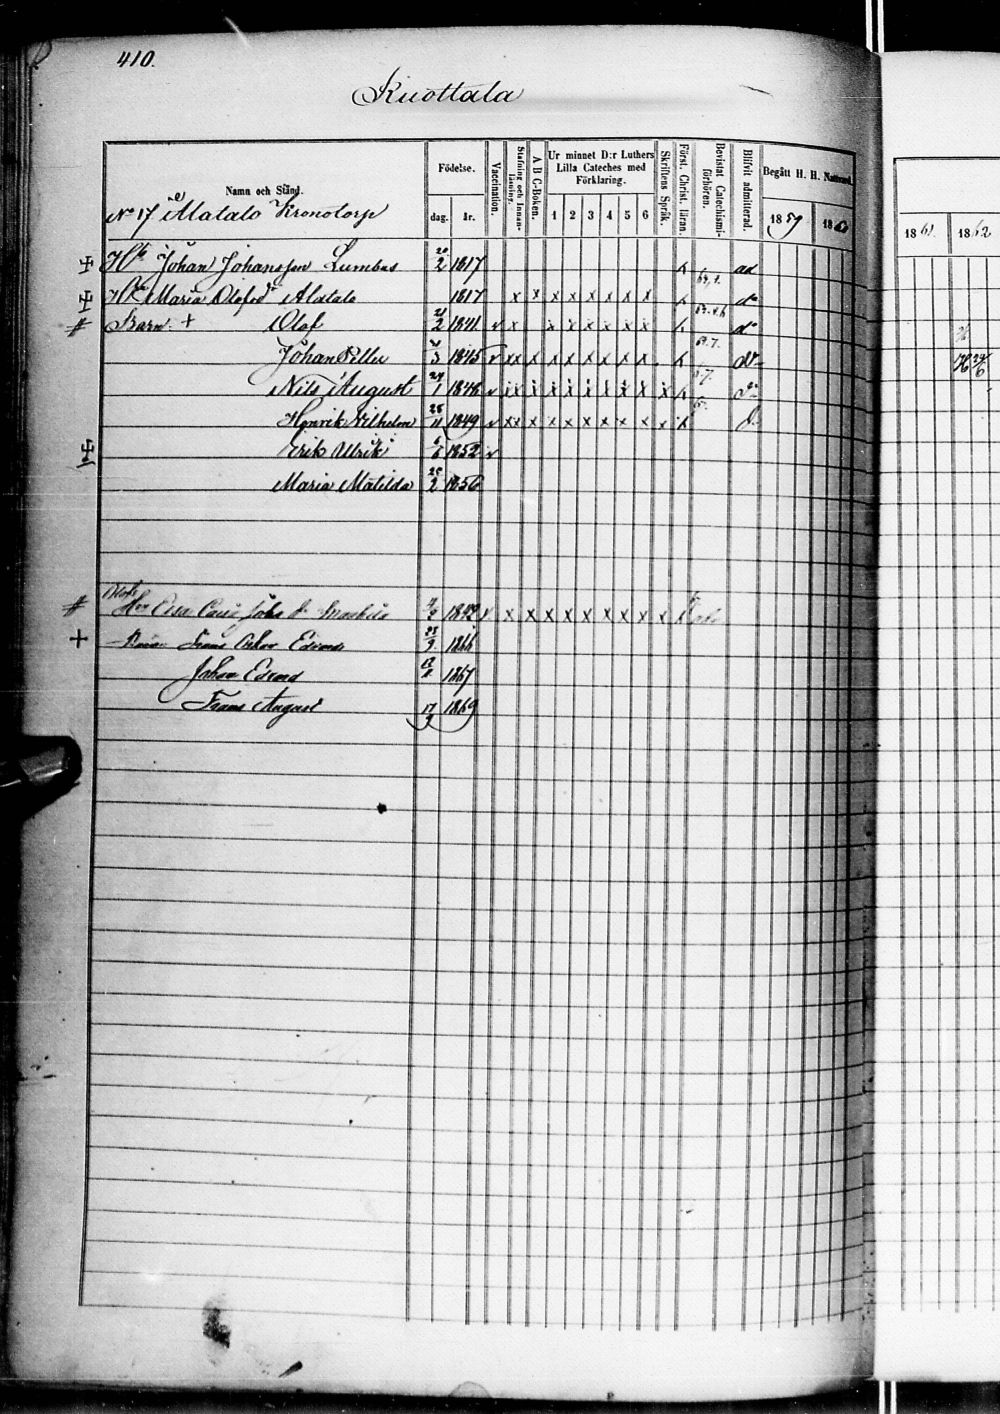 410.
Kuottala
Namn och Stånd.
Födelse.
dag.
år.
Vaccination.
Stafning och Innanläsning.
A B C-Boken.
Ur minnet D:r Luthers Lilla Cateches med Förklaring.
1 2 3 4 5 6
Skriftens Språk.
Först. Christ. läran.
Bevistat Catechismiförhören.
Blifvit admitterad.
Begått H. H. Nattvard.
1859 1860
1861. 1862
No 17 Alatalo Kronotorp
Johan Johansson Lumbus 20/2 1817 ad
Maria Olofsdr Alatalo 1817 do
Barn + Olof 21/2 1841 v x x x x x x x do
Johan Petter 3 1845 v xx x x x x x x x
Nils August 1 1848 v xx x x x x x x x x
Henrik Wilhelm 28/11 1849 v xx x x x x x x x x
Erik Ulrik 6/6 1852 v
Maria Matilda 2 1856
1842 v x x x x x x x x x
Frans Oskar Edvard 9 1866
Johan Edvard 1867
Frans August 17/9 1869